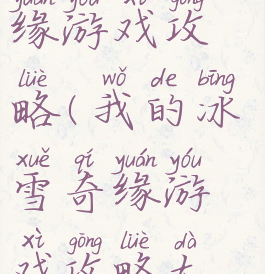 yuán yóu xì gōng
缘游戏攻
lüè wǒ de bīng
略(我的冰
xuě qí yuán yóu
雪奇缘游
xì gōng lüè dà
戏攻略大